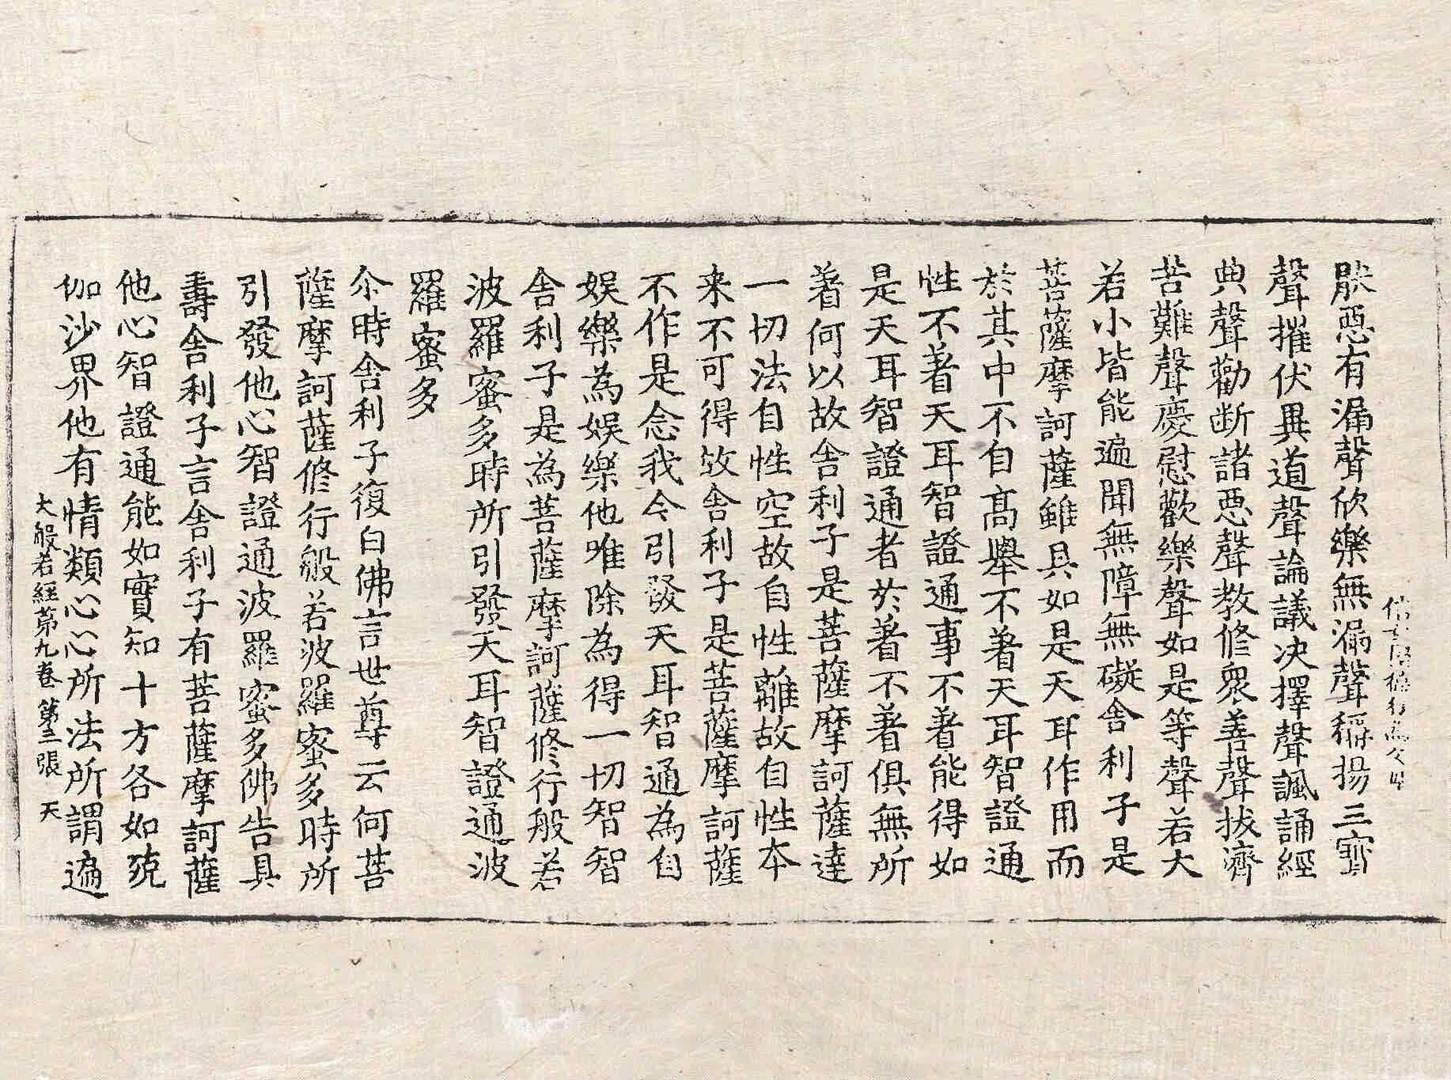 猒惡有漏聲欣樂無漏聲稱揚三寶
聲摧伏異道聲論議決擇聲諷誦經
典聲勸断諸惡聲教修衆善聲拔濟
苦難聲慶慰歡樂聲如是等聲若大
若小皆能遍聞無障無礙舎利子是
菩薩摩訶薩雖具如是天耳作用而
於其中不自髙舉不著天耳智證通
性不著天耳智證通事不著能得如
是天耳智證通者於著不著俱無所
著何以故舎利子是菩薩摩訶薩達
一切法自性空故自性離故自性本
来不可得故舎利子是菩薩摩訶薩
不作是念我今引發天耳智通為自
娱樂為娱樂他唯除為得一切智智
舎利子是為菩薩摩訶薩修行般若
波羅蜜多時所引發天耳智證通波
羅蜜多
尒時舎利子復白佛言世尊云何菩
薩摩訶薩修行般若波羅蜜多時所
引發他心智證通波羅蜜多佛告具
壽舎利子言舎利子有菩薩摩訶薩
他心智證通能如實知十方各如殑
伽沙界他有情類心心所法所謂遍
大般若經第九卷 第二張 天